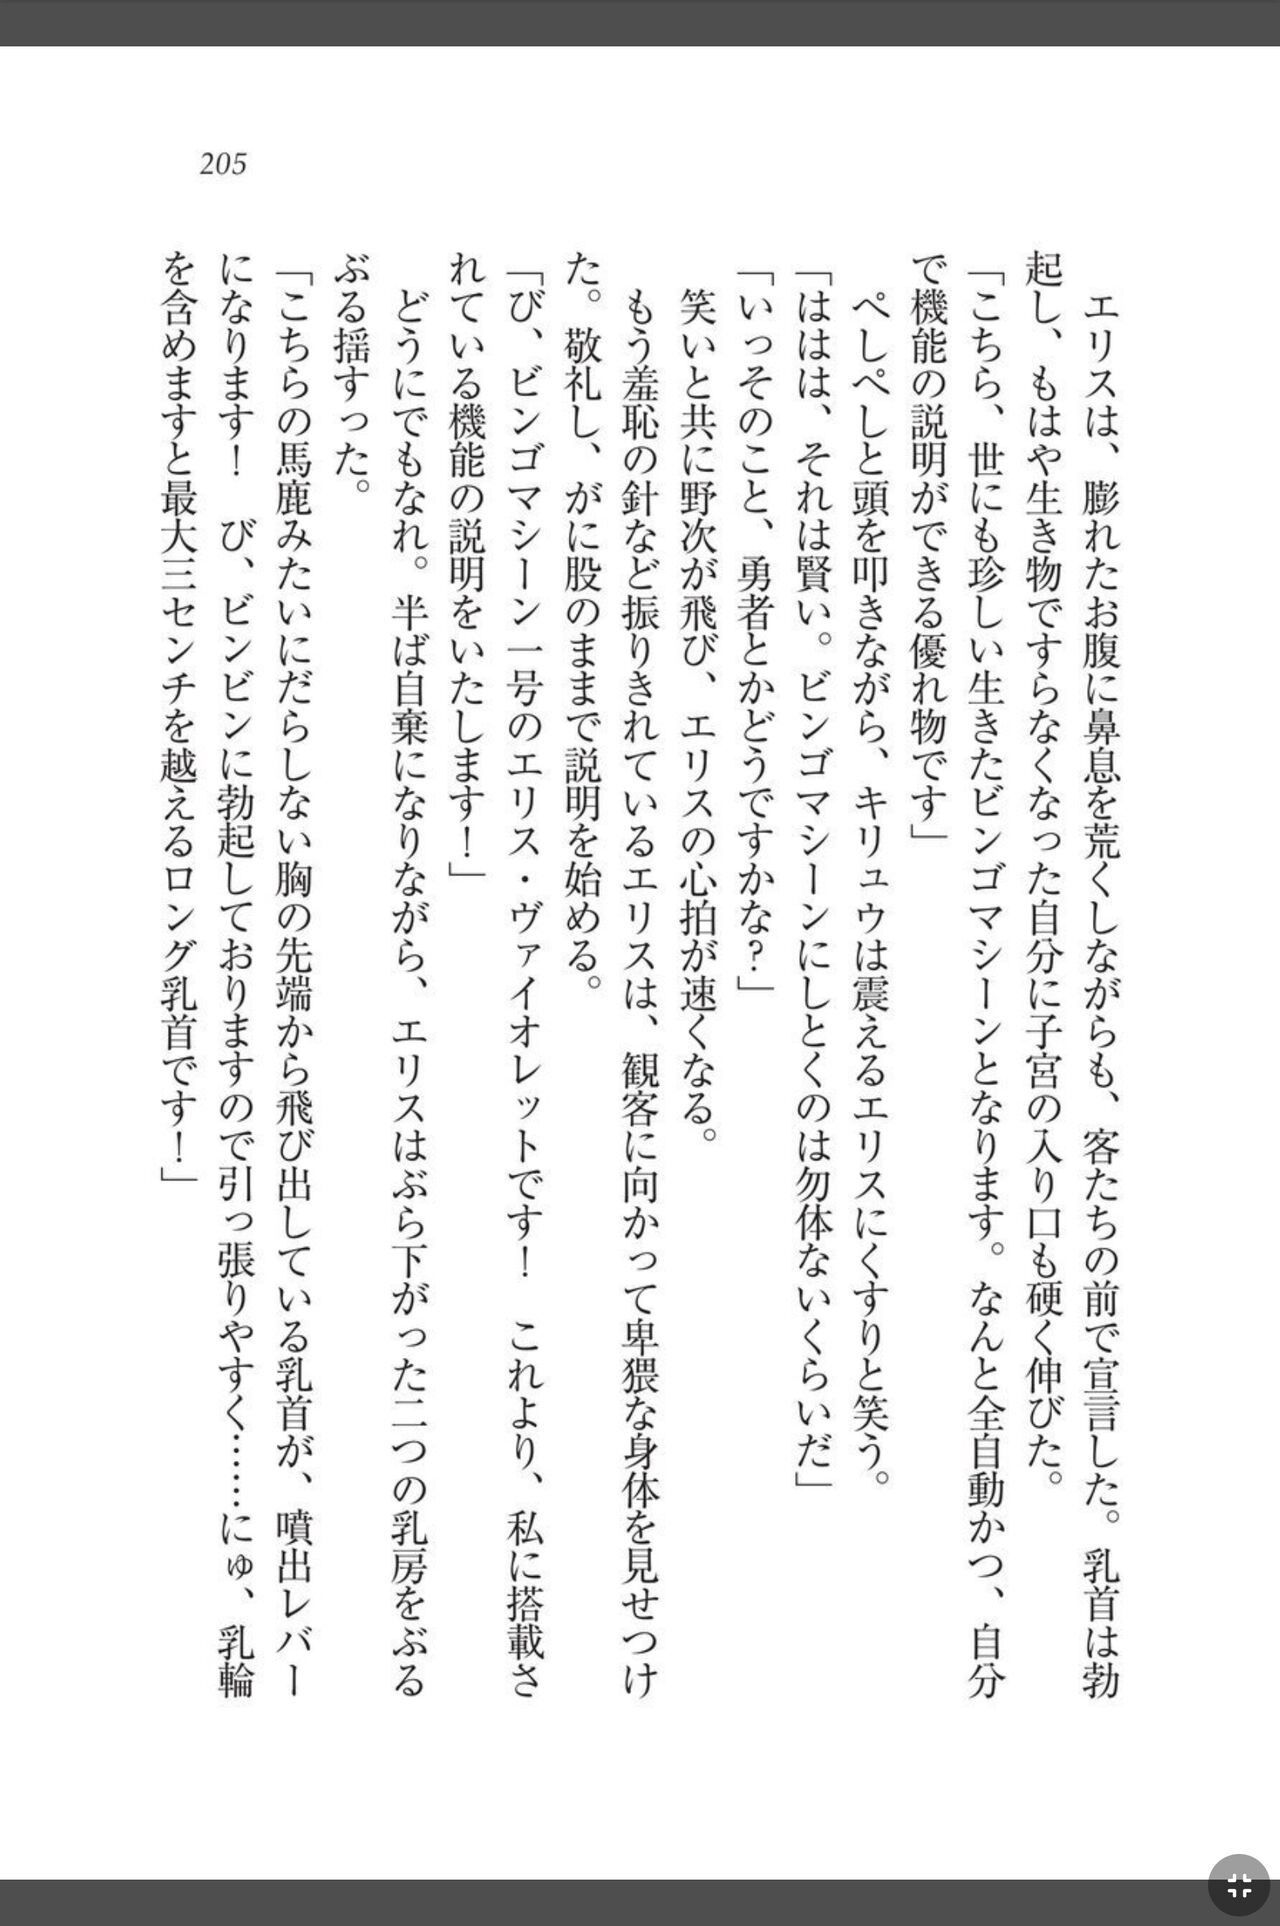 205
エリスは、膨れたお腹に鼻息を荒くしながらも、客たちの前で宣言した。乳首は勃
起し、もはや生き物ですらなくなった自分に子宮の入り口も硬く伸びた。
「こちら、世にも珍しい生きたビンゴマシーンとなります。なんと全自動かつ、自分
で機能の説明ができる優れ物です」
ぺしぺしと頭を叩きながら、キリュウは震えるエリスにくすりと笑う。
「ははは、それは賢い。ビンゴマシーンにしとくのは勿体ないくらいだ」
「いっそのこと、勇者とかどうですかな？」
笑いと共に野次が飛び、エリスの心拍が速くなる。
もう羞恥の針など振りきれているエリスは、観客に向かって卑猥な身体を見せつけ
た。敬礼し、がに股のままで説明を始める。
「び、ビンゴマシーン一号のエリス・ヴァイオレットです！　これより、私に搭載さ
れている機能の説明をいたします！」
どうにでもなれ。半ば自棄になりながら、エリスはぶら下がった二つの乳房をぶる
ぶる揺すった。
「こちらの馬鹿みたいにだらしない胸の先端から飛び出している乳首が、噴出レバー
になります！　び、ビンビンに勃起しておりますので引っ張りやすく……にゅ、乳輪
を含めますと最大三センチを越えるロング乳首です！」